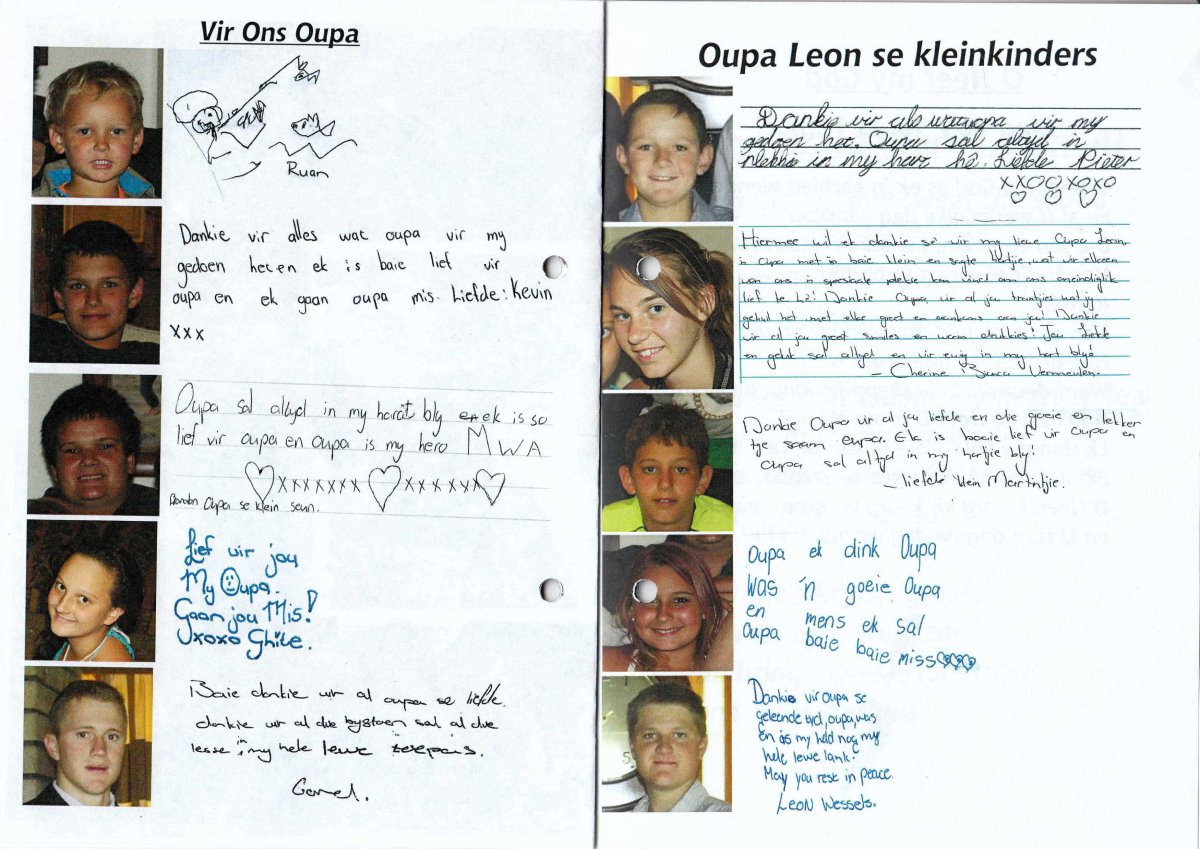 Vir Ons Oupa
Ruan
Dankie vir alles wat oupa vir my
gedoen het en ek is baie lief vir
oupa en ek gaan oupa mis. Liefde: Kevin
xxx
Oupa sal altyd in my harat bly ek is so
lief vir oupa en oupa is my hero MWA
xxxxxxx xxxxxx
Oupa se klein seun.
Lief vir jou
My Oupa.
Gaan jou Mis!
Uxoxo Ghile.
Baie dankie vir al oupa se liefde.
dankie vir al die bystaan sal al die
lesse in my hele lewe toepas.
Oupa Leon se kleinkinders
Dankie vir als wat oupa vir my
gedoen het. Oupa sal altyd in
plekkie in my hart hê. Liefde Pieter
xxoo xoxo
Hiermee wil ek dankie sê vir my liewe Oupa Leon,
'n Oupa met 'n baie klein en sagte hartjie, wat vir elkeen
van ons 'n spesiale plekkie kon vind om ons oneindiglik
lief te hê! Dankie Oupa, vir al jou traantjies wat jy
gehuil het met elke groet en aankoms aan jou! Dankie
vir al jou groot smiles en warm drukkies! Jou liefde
en geluk sal altyd en vir ewig in my hart bly!
– Cherine Vermeulen.
Dankie Oupa vir al jou liefde en die goeie en lekker
tye saam oupa. Ek is baaie lief vir Oupa en
Oupa sal altyd in my hartjie bly!
– liefde klein Martintjie.
Oupa ek dink Oupa
was 'n goeie Oupa
en mens ek sal
Oupa baie baie miss
Dankie vir oupa se
geleende tyd, oupa, was
en is my held nog my
hele lewe lank.
May you rest in peace.
Leon Wessels.